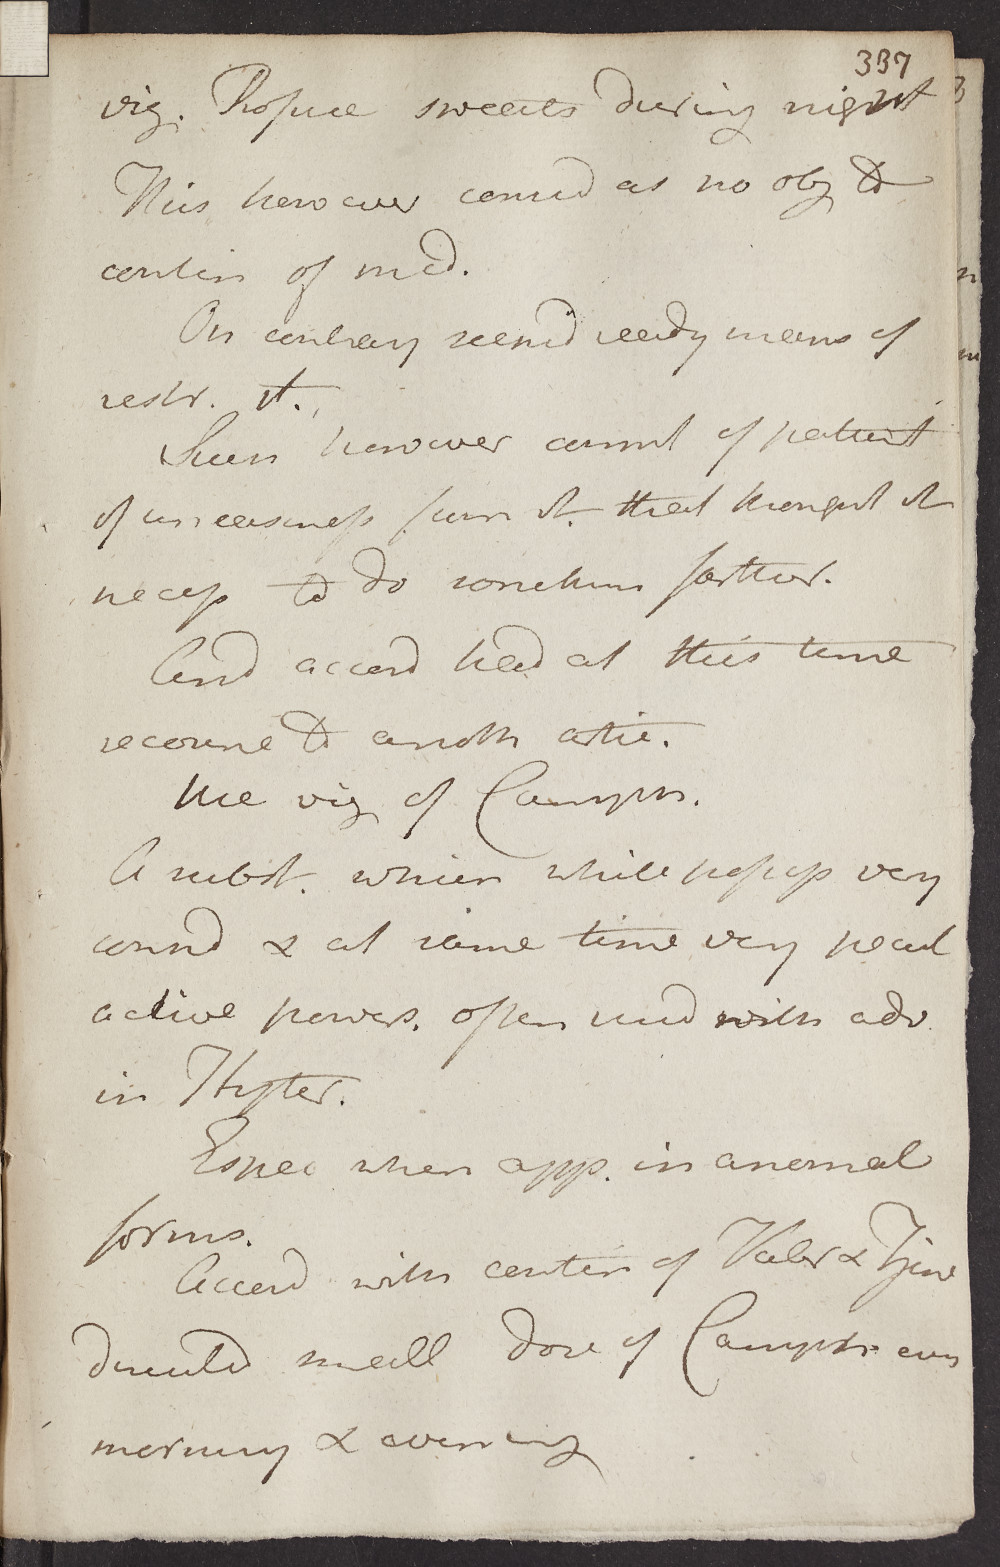 337
viz. Profuse sweats during night
This however consid as no obj to
contin of med.
On contrary seem'd ready means of
restr. it.
Such however
of uneasiness from it. that thought it
necess to do somethin farther.
And accord had at this time
recourse to anoth artic.
the viz of Camph.
A subst. which while possess very
consid & at same time very pecul
active powers. often used with adv
in Hyster.
Espec when app. in anomal
forms.
Accord with contin of Valer &
directed small dose of Camph. every
morning & evening